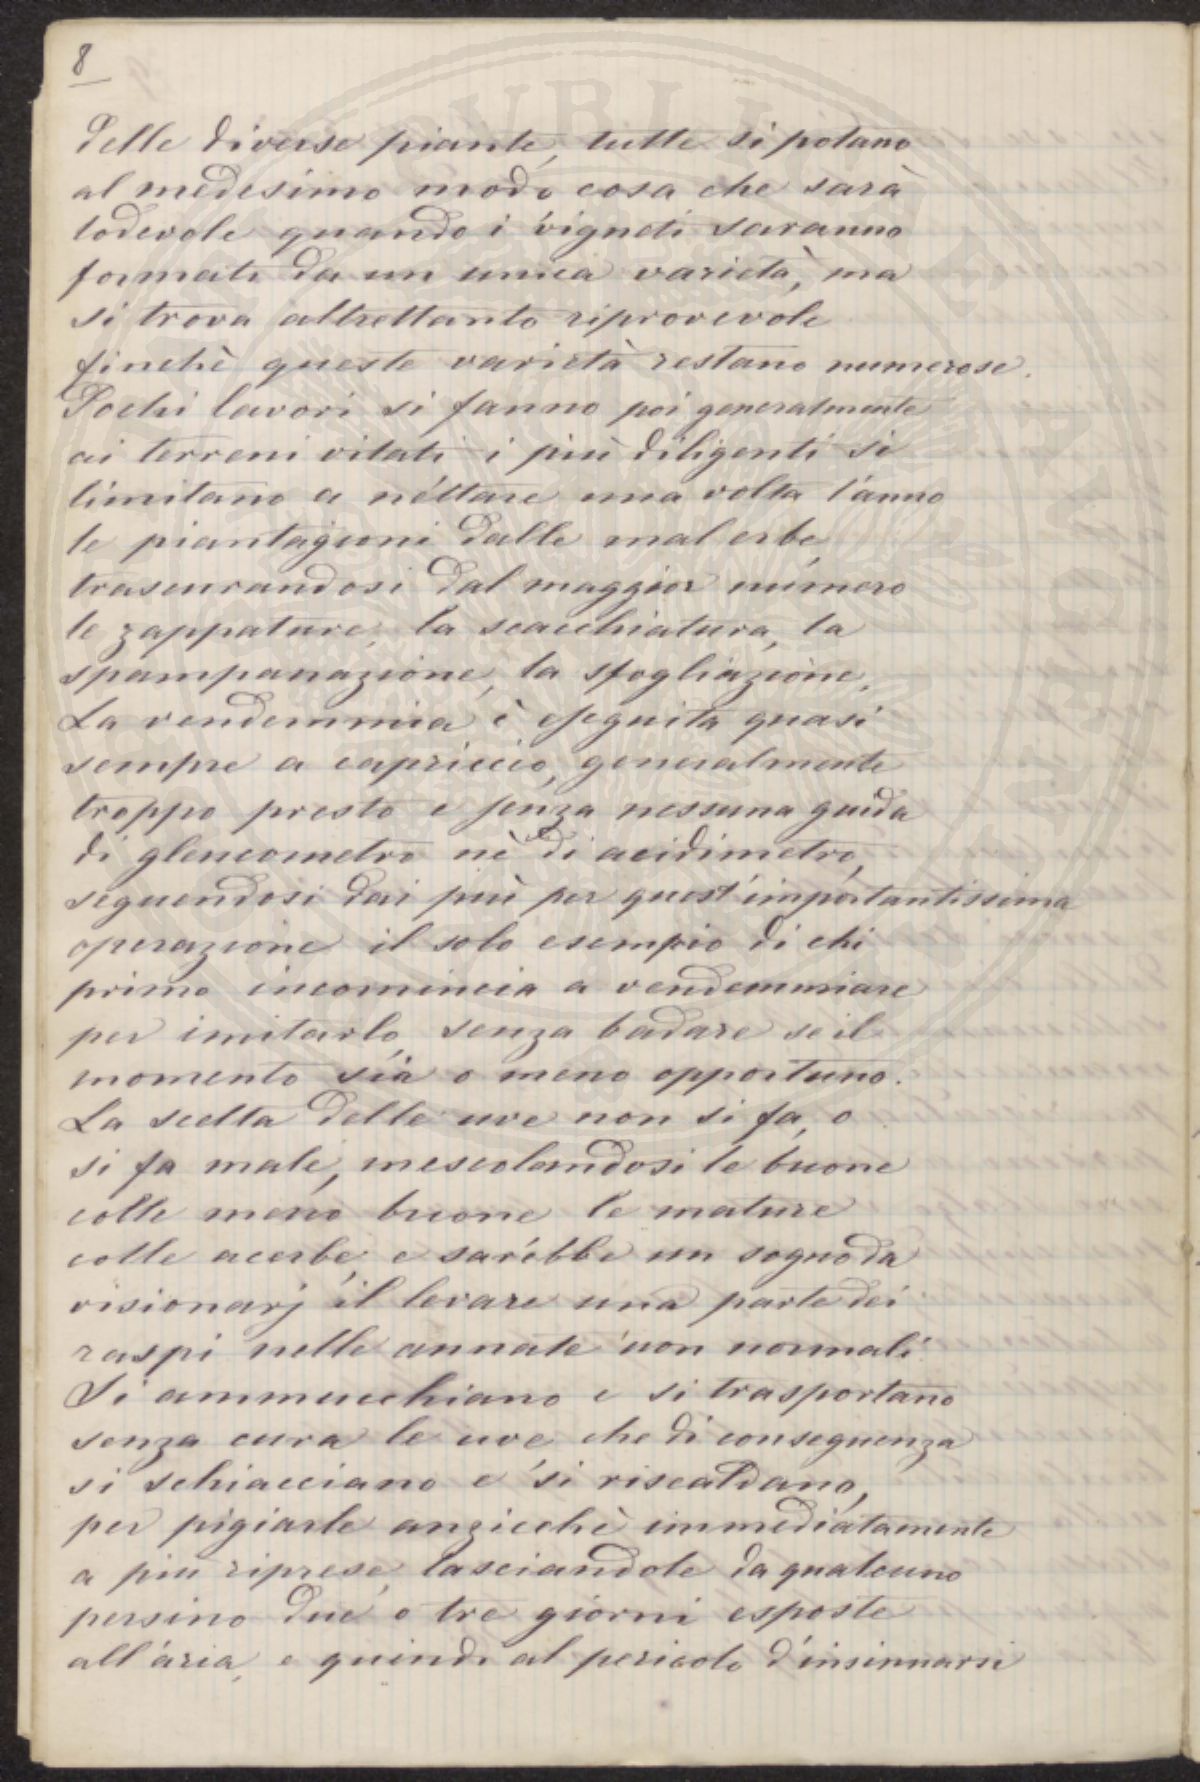 8
delle diverse piante, tutte si potano
al medesimo modo cosa che sarà
lodevole quando i vigneti saranno
formati da un unica varietà, ma
si trova altrettanto riprovevole
finchè queste varietà restano numerose.
Pochi lavori si fanno poi generalmente
ai terreni vitati i più diligenti si
limitano a nettare una volta l'anno
le piantagioni dalle mal erbe,
trascurandosi dal maggior numero
le zappature, la scacchiatura, la
spampanazione, la sfogliazione.
La vendemmia è eseguita quasi
sempre a capriccio, generalmente
troppo presto e senza nessuna guida
di gleucometro nè di acidimetro,
seguendosi dai più per quest'importantissima
operazione il solo esempio di chi
primo incomincia a vendemmiare
per imitarlo, senza badare se il
momento sia o meno opportuno.
La scelta delle uve non si fa, o
si fa male, mescolandosi le buone
colle meno buone le mature
colle acerbe, e sarebbe un sogno da
visionarj il levare una parte dei
raspi nelle annate non normali.
Si ammucchiano e si trasportano
senza cura le uve che di conseguenza
si schiacciano e si riscaldano,
per pigiarle anzicchè immediatamente
a più riprese, lasciandole da qualcuno
persino due o tre giorni esposte
all'aria, e quindi al pericolo d'insinuarsi